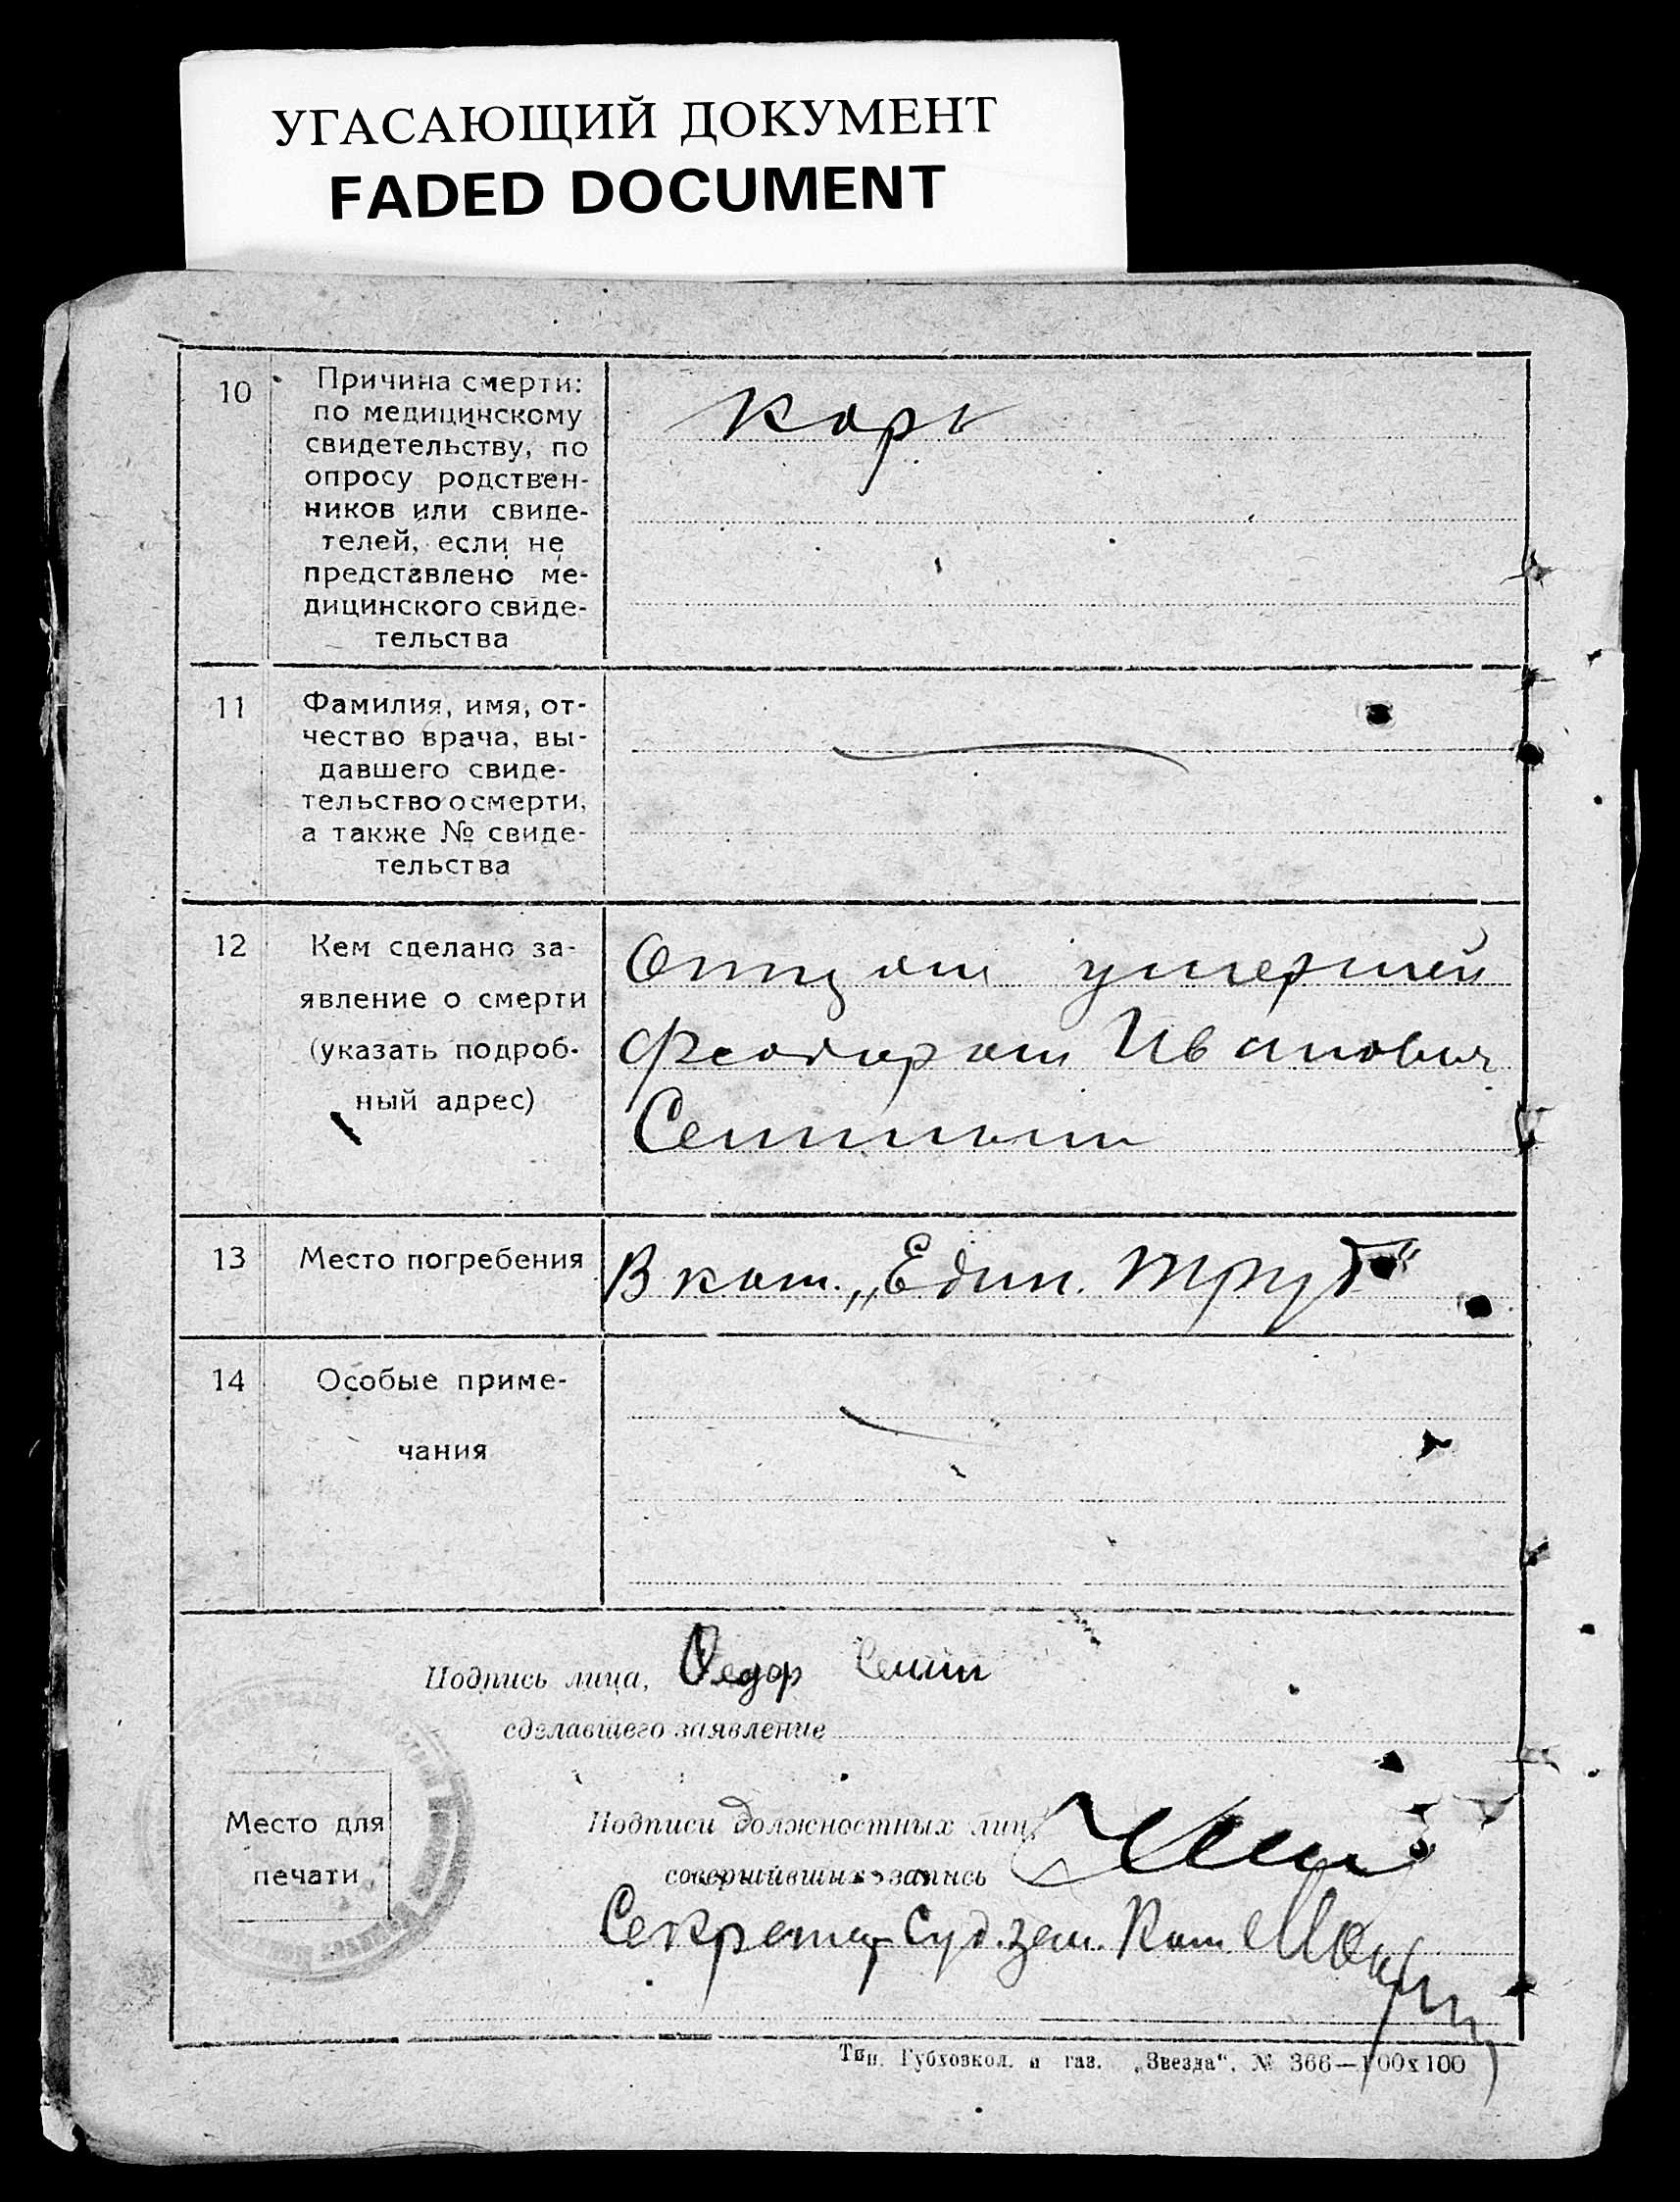 УГАСАЮЩИЙ ДОКУМЕНТ
FADED DOCUMENT
10
Причина смерти:
по медицинскому
свидетельству, по
опросу родствен-
ников или свиде-
телей, если не
представлено ме-
дицинского свиде-
тельства
Корь
11
Фамилия, имя, от-
чество врача, вы-
давшего свиде-
тельство о смерти,
а также № свиде-
тельства
12
Кем сделано за-
явление о смерти
(указать подроб-
ный адрес)
Отцом умершей
Феодором Иванович
13
Место погребения
В ком. „Един. Труд“
14
Особые приме-
чания
Подпись лица, Федор
сделавшего заявление
Место для
печати
Подписи должностных лиц,
совершивших запись
Секретар
Тип. Губхозкол. и газ. „Звезда“. № 366—100х100